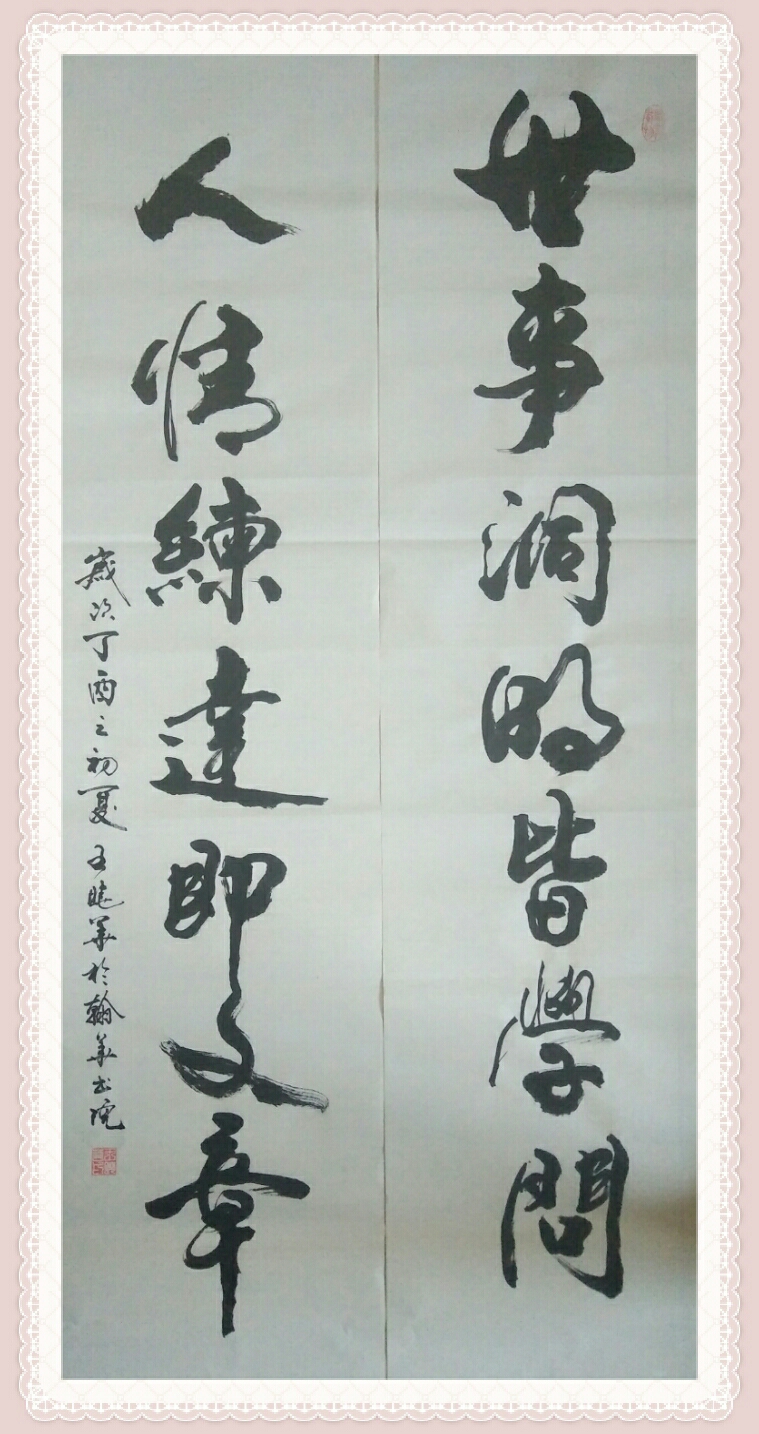 世事洞明皆學問
人情練達即文章
歲次丁酉之初夏 王曉華於翰華書院